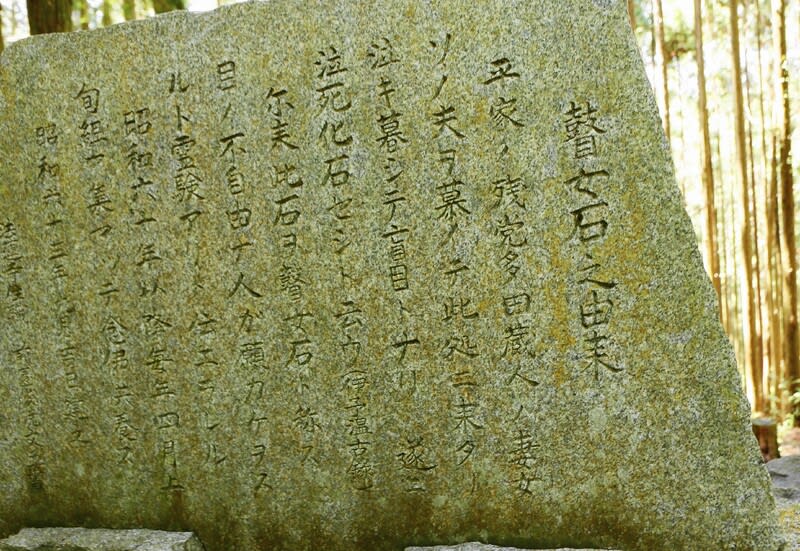 瞽女石之由来
平家ノ残党多田蔵人ノ妻女
ソノ夫ヲ慕ノテ此処ニ来タリ
泣キ暮シテ盲目トナリ 遂ニ
泣死化石セシト云ウ(伊予温古録)
尓来此石ヲ瞽女石ト称ス
目ノ不自由ナ人ガ願カケヲス
ルト霊験アリト伝エラレル
昭和六十年以降毎年四月上
旬組中集マリテ念佛供養ス
昭和六十三年